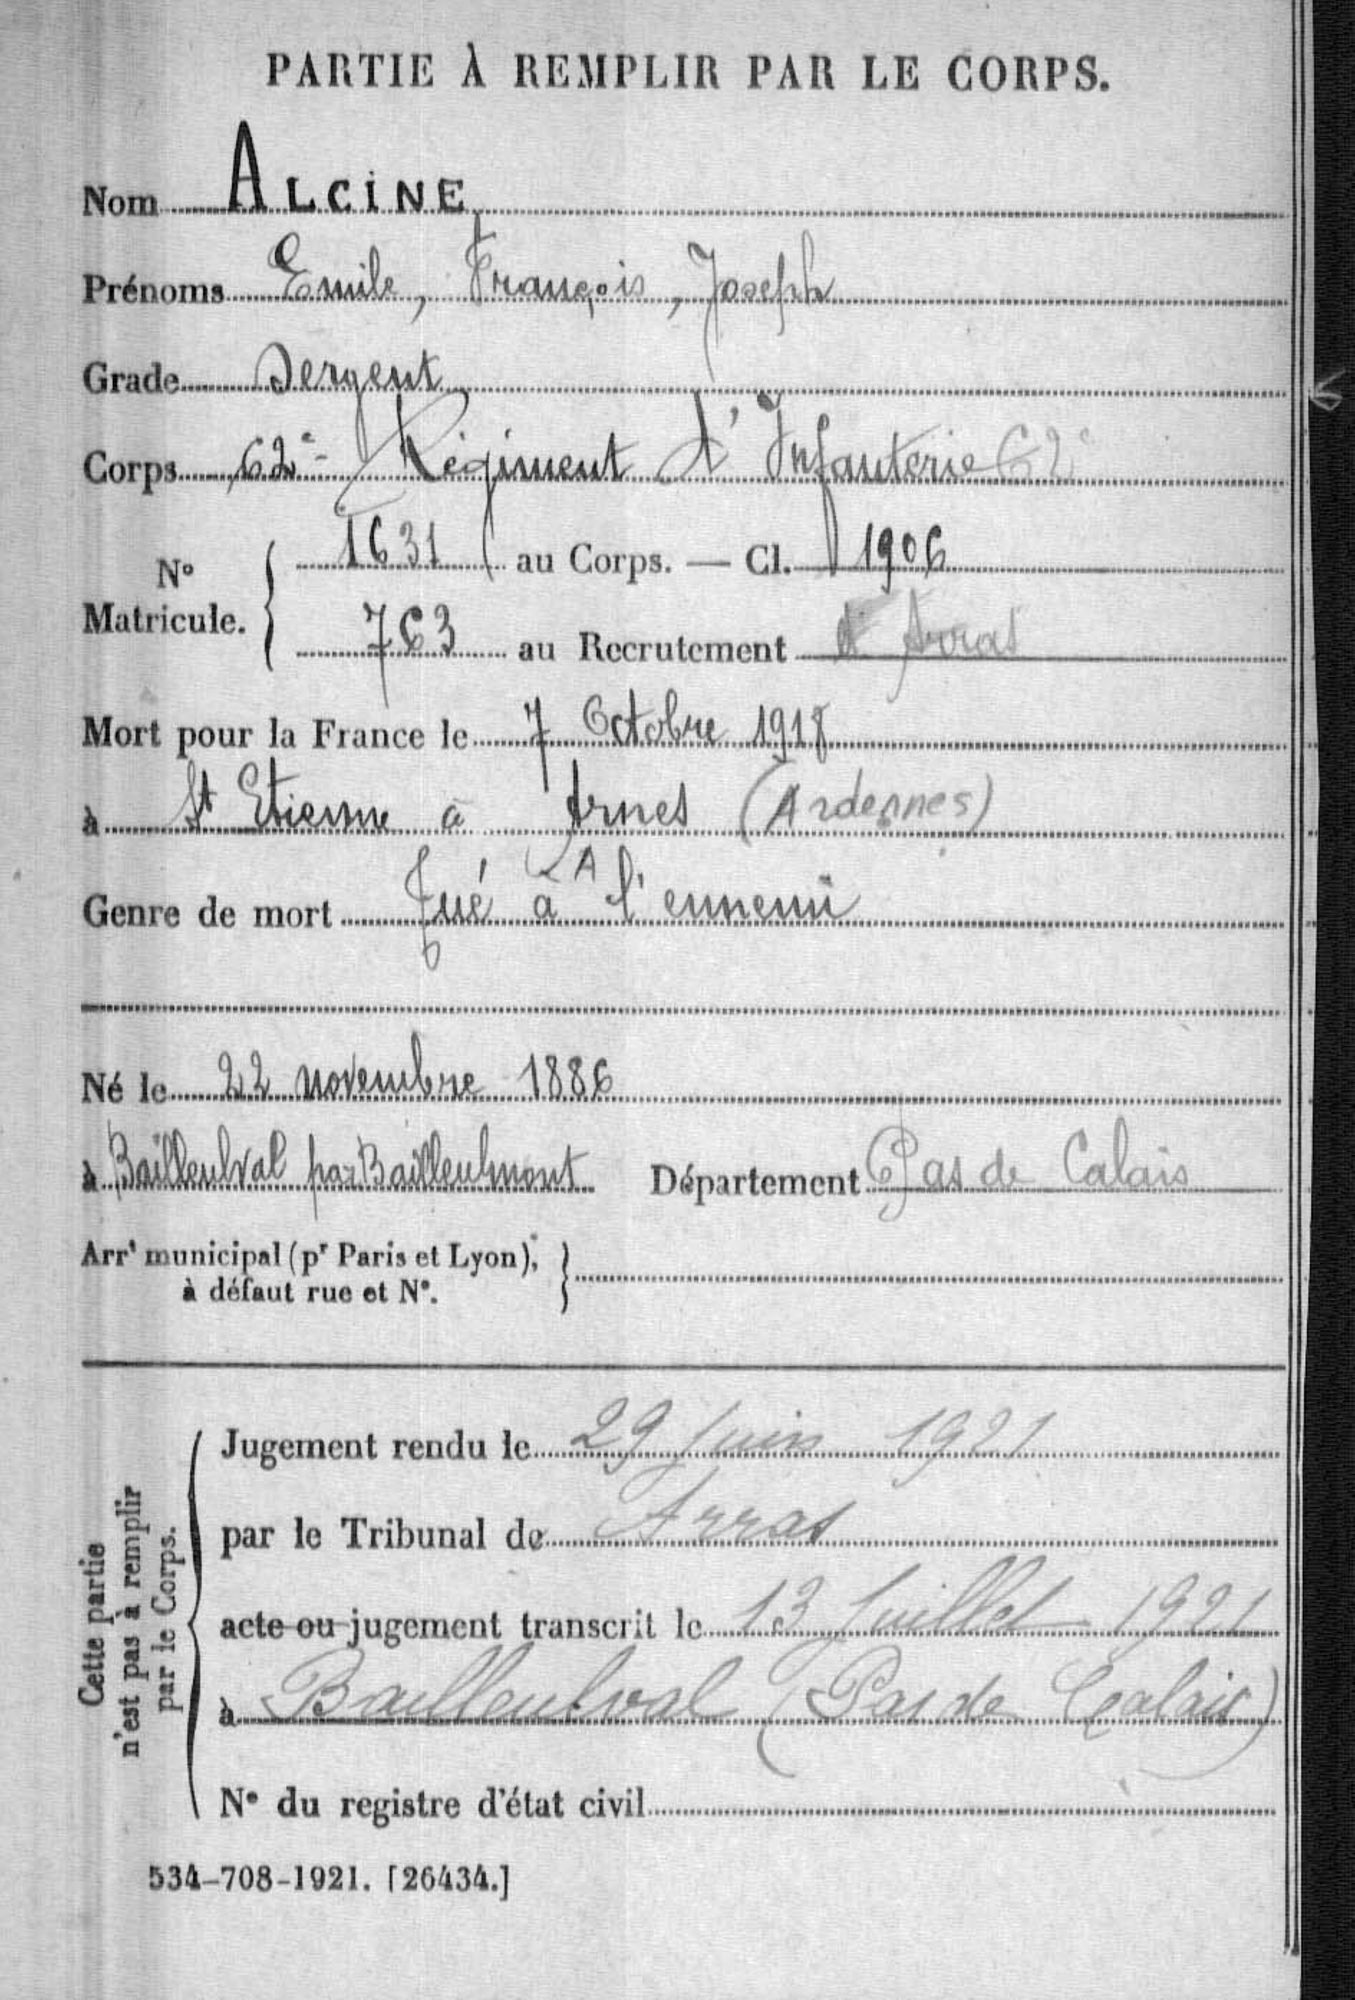 PARTIE À REMPLIR PAR LE CORPS.
Nom ALCINE
Prénoms Emile, François, Joseph
Grade Sergent
Corps 62e Régiment d'Infanterie 62e
N° Matricule. 1631 au Corps. — Cl. 1906
763 au Recrutement Arras
Mort pour la France le 7 Octobre 1918
à St Etienne à Arnes (Ardennes)
A
Genre de mort Tué à l'ennemi
Né le 22 novembre 1886
à Bailleulval par Bailleulmont Département Pas de Calais
Arrt municipal (pr Paris et Lyon),
à défaut rue et N°.
Cette partie
n'est pas à remplir
par le Corps.
Jugement rendu le 29 Juin 1921
par le Tribunal de Arras
acte ou jugement transcrit le 13 Juillet 1921
à Bailleulval (Pas de Calais)
N° du registre d'état civil
534-708-1921. [26434.]